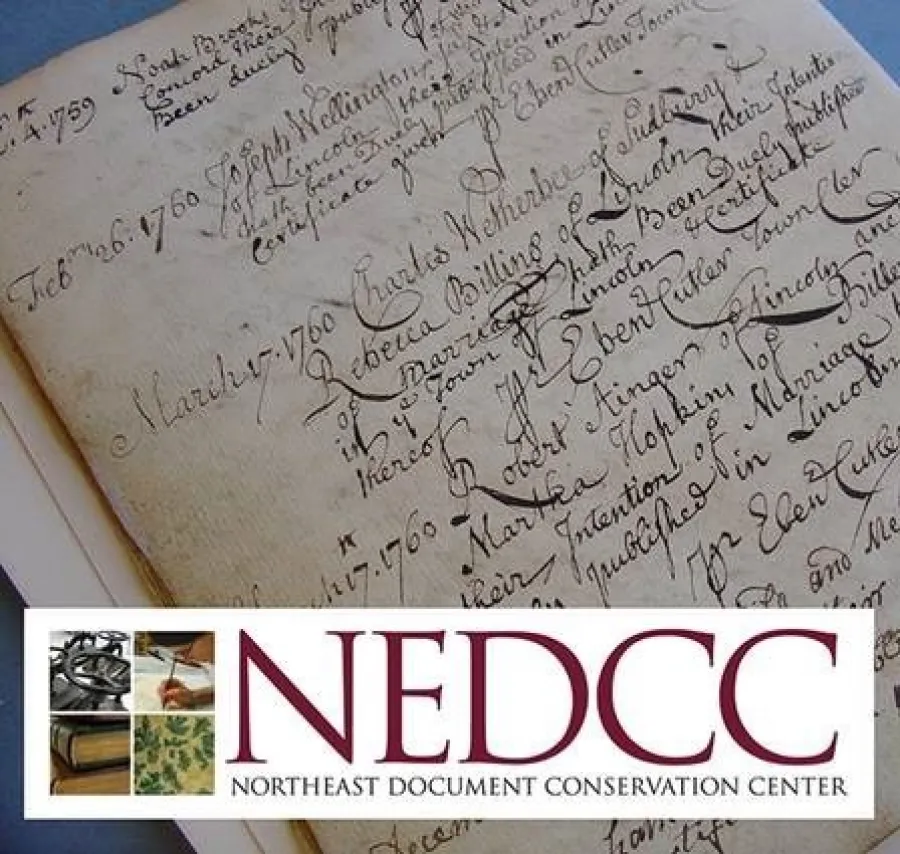 Noah Brooks
Concord their
Been duely publish
4. 1759
Joseph Wellington
of Lincoln their Intention of
hath been Duely published in Lin
Certificate given pr Eben Cutler Town
Feb 26. 1760
Charles Wetherbee of Sudbury &
Rebecca Billing of Lincoln their Intentio
of marriage hath Been Duely publified
in ye Town of Lincoln & Certificate
thereof pr Eben Cutler Town Cler
March 17. 1760
Robert Ainger of Lincoln and
Martha Hopkins of Bille
their Intention of Marriage
published in Lincoln
pr Eben Cutler
17. 1760
and Me
NEDCC
NORTHEAST DOCUMENT CONSERVATION CENTER